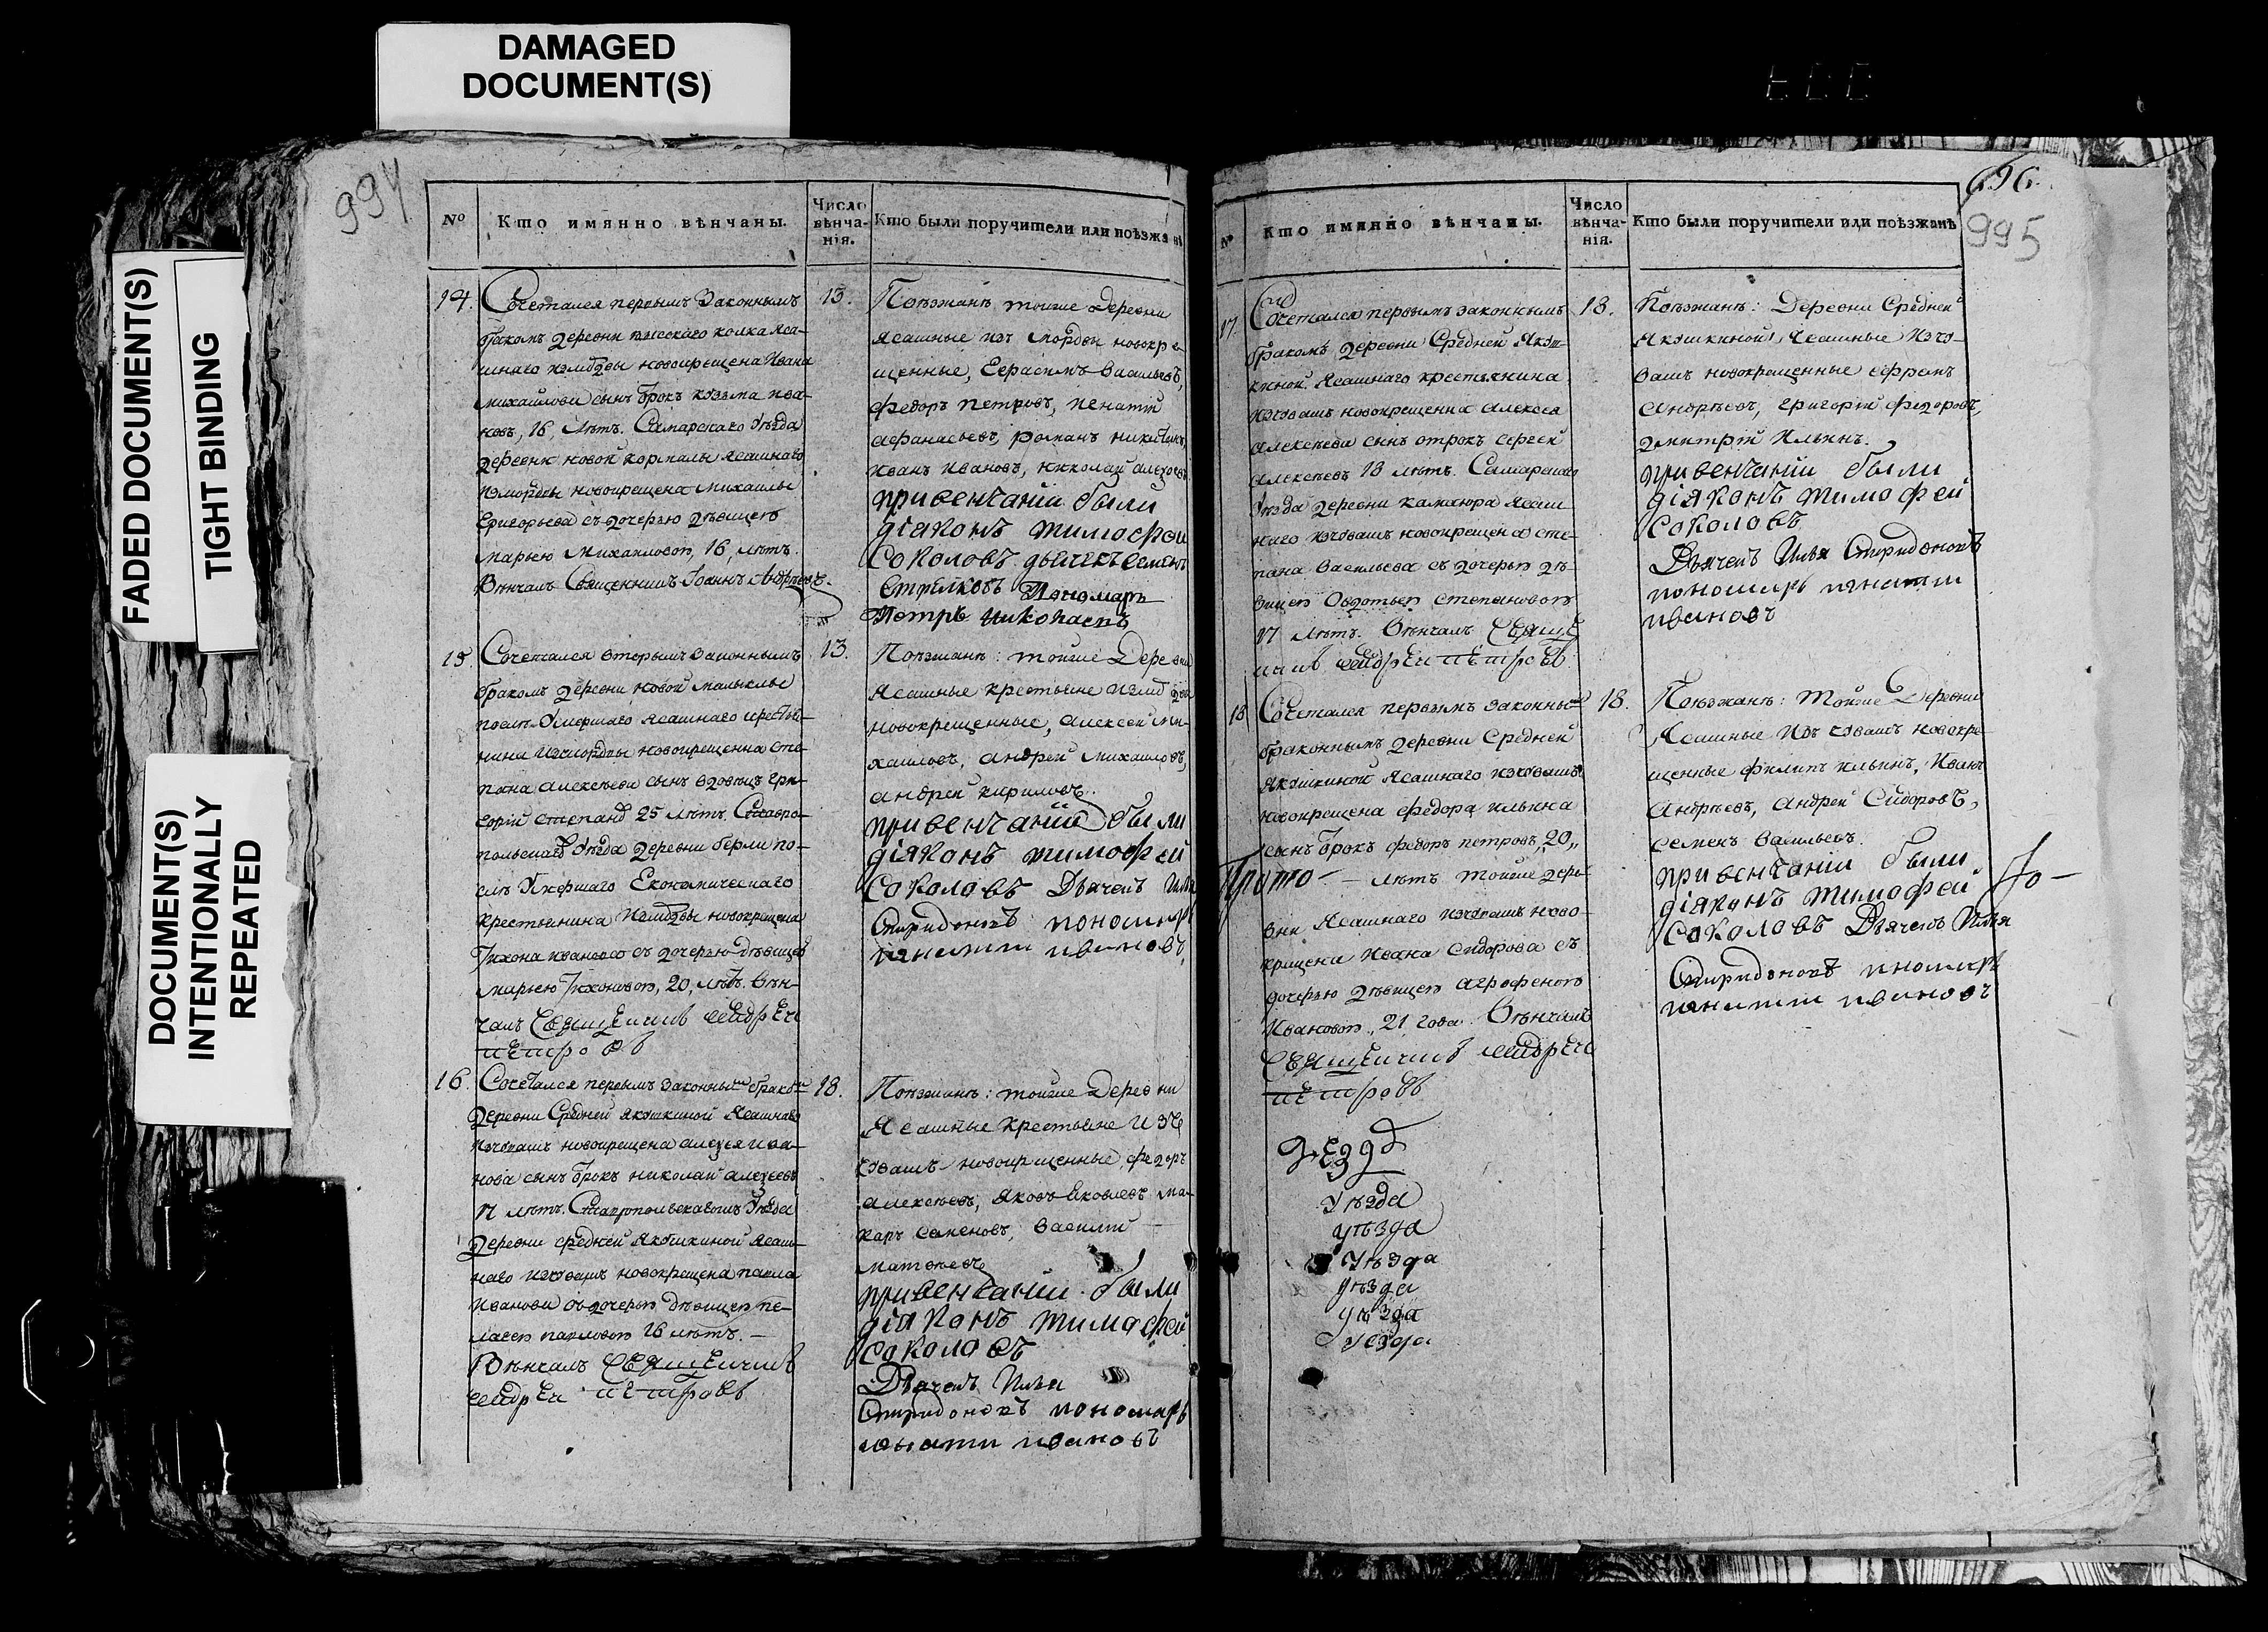 DAMAGED
DOCUMENT(S)
FADED DOCUMENT(S)
TIGHT BINDING
DOCUMENT(S)
INTENTIONALLY
REPEATED
994
№
Кто имянно вѣнчаны.
Число
вѣнча-
нія.
Кто были поручители или поѣзжанѣ
14.
Сочетался первымъ Законнымъ
бракомъ деревни высокаго колка Яса-
шнаго новокрещена Ивана
михайлова сынъ отрокъ козьма ива-
новъ, 16, лѣтъ. Самарскаго Уѣзда
деревни новой кармалы ясашнаго
измордвы новокрещена михайлы
Григорьева съ дочерью дѣвицею
марьею михайловою, 16, лѣтъ.
Вѣнчалъ Священникъ Іоаннъ Андреевъ.
13.
Поѣзжанѣ тойже деревни
Ясашные изъ мордвы новокре-
щенные, Герасимъ Васильевъ,
федоръ петровъ, игнатій
афанасьевъ, романъ никитинъ,
иванъ ивановъ, николай
привенчаніи были
діяконъ тимофеи
соколовъ дьячекъ семенъ
Стрѣлковъ Пономарь
Петръ Николаевъ
15.
Сочетался вторымъ законнымъ
бракомъ деревни новой малыклы
послѣ Умершаго ясашнаго крестья-
нина измордвы новокрещенна сте-
пана алексѣева сынъ вдовецъ гри-
горій степановъ 25 лѣтъ. Ставро-
польскаго Уѣзда деревни бирли по-
слѣ Умершаго Економическаго
крестьянина измордвы новокрещена
Тихона иванова съ дочерью дѣвицею
марьею Тихоновою, 20, лѣтъ. Вѣн-
чалъ Священникъ андрей
петровъ
13.
Поѣзжанѣ: тойже Деревни
Ясашные крестьяне измордвы
новокрещенные, алексей ми-
хаиловъ, андрей михаиловъ,
андрей кириловъ.
привенчаніи были
діяконъ тимофеи
соколовъ Дьячекъ Илья
Спиридоновъ пономарь
игнатіи ивановъ
16.
Сочетался первымъ Законнымъ бракомъ
деревни Средней якушкиной Ясашнаго
изчювашъ новокрещена алексея ива-
нова сынъ отрокъ николаи алексеевъ
17 лѣтъ. Ставропольскагожъ Уѣзда
деревни средней якушкиной ясаш-
наго изчювашъ новокрещена павла
иванова съ дочерью дѣвицею пе-
лагеею павловою 16 лѣтъ. —
Вѣнчалъ Священникъ
андреи петровъ
18.
Поѣзжанѣ: тойже Деревни
Ясашные крестьяне изъ
чювашъ новокрещенные, федоръ
алексѣевъ, яковъ яковлевъ ма-
каръ семеновъ, василій
матвеевъ
привенчаніи были
діяконъ тимофеи
соколовъ
Дьячекъ Илья
Спиридоновъ пономарь
игнатіи ивановъ
696.
995
№
Кто имянно вѣнчаны.
Число
вѣнча-
нія.
Кто были поручители или поѣзжанѣ
17.
Сочетался первымъ законнымъ
бракомъ деревни Средней Якуш-
киной Ясашнаго крестьянина
изчювашъ новокрещенна алексея
алексѣева сынъ отрокъ сергеи
алексѣевъ 18 лѣтъ. Самарскаго
Уѣзда деревни Ясаш-
наго изчювашъ новокрещена сте-
пана васильева съ дочерью дѣ-
вицею Овдотьею степановою
17 лѣтъ. Вѣнчалъ Священ-
никъ андреи петровъ
18.
Поѣзжанѣ: Деревни Средней
Якушкиной, Ясашные изчю-
вашъ новокрещенные ефремъ
андрѣевъ, григорій федоровъ,
дмитрій ильинъ.
привенчаніи были
діяконъ тимофеи
соколовъ
Дьячекъ Илья Спиридоновъ
пономарь игнатіи
ивановъ
18
Сочетался первымъ законнымъ
браконнымъ деревни Средней
якушкиной Ясашнаго изчювашъ
новокрещена федора ильина
сынъ отрокъ федоръ петровъ, 20,,
Прото-
— лѣтъ тойже дере-
вни Ясашнаго изчювашъ ново-
крещена ивана Сидорова съ
дочерью дѣвицею агрофеною
Ивановою, 21 года. Вѣнчалъ
Священникъ андреи
петровъ
18.
Поѣзжанѣ: тойже Деревни
Ясашные изъ чювашъ новокре-
щенные филипъ ильинъ, иванъ
Андрѣевъ, андрей Сидоровъ,
семенъ васильевъ.
привенчаніи были
діяконъ тимофеи
соколовъ Дьячекъ Илья
Спиридоновъ пономарь
игнатіи ивановъ
Уѣзда
уѣзда
Уѣзда
уѣзда
уѣзда
уезда